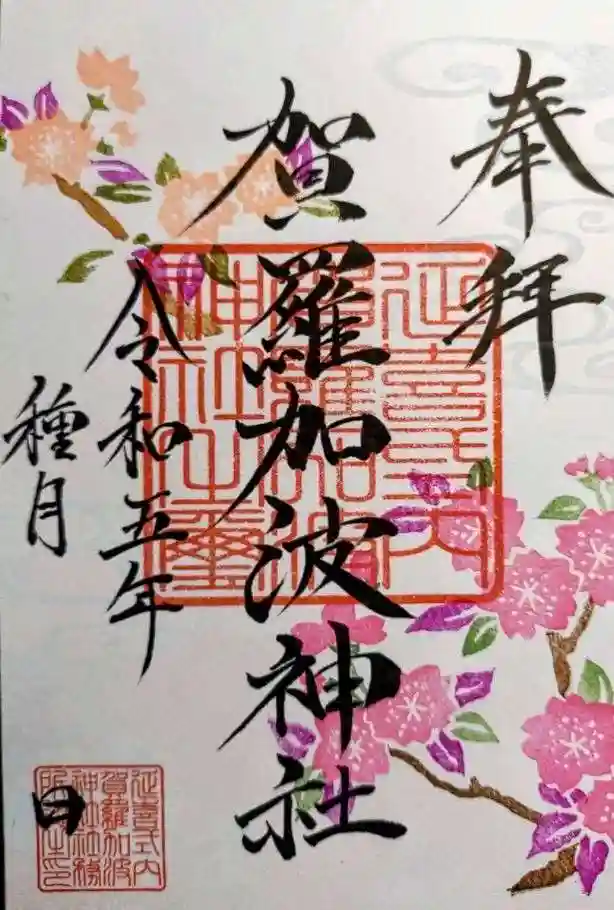 奉拝
賀羅加波神社
令和五年
種月
日
延喜式内
賀羅加波
神社之璽
延喜式内
賀羅加波
神社社務
所之印